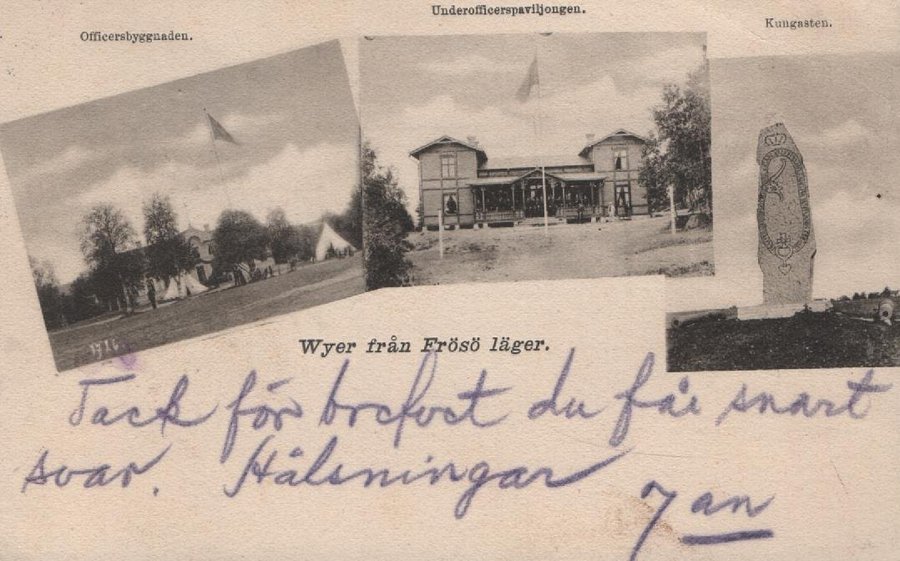 Officersbyggnaden.
Underofficerspaviljongen.
Kungasten.
Wyer från Frösö läger.
Tack för brefvet du får snart
svar. Hälsningar
Jan